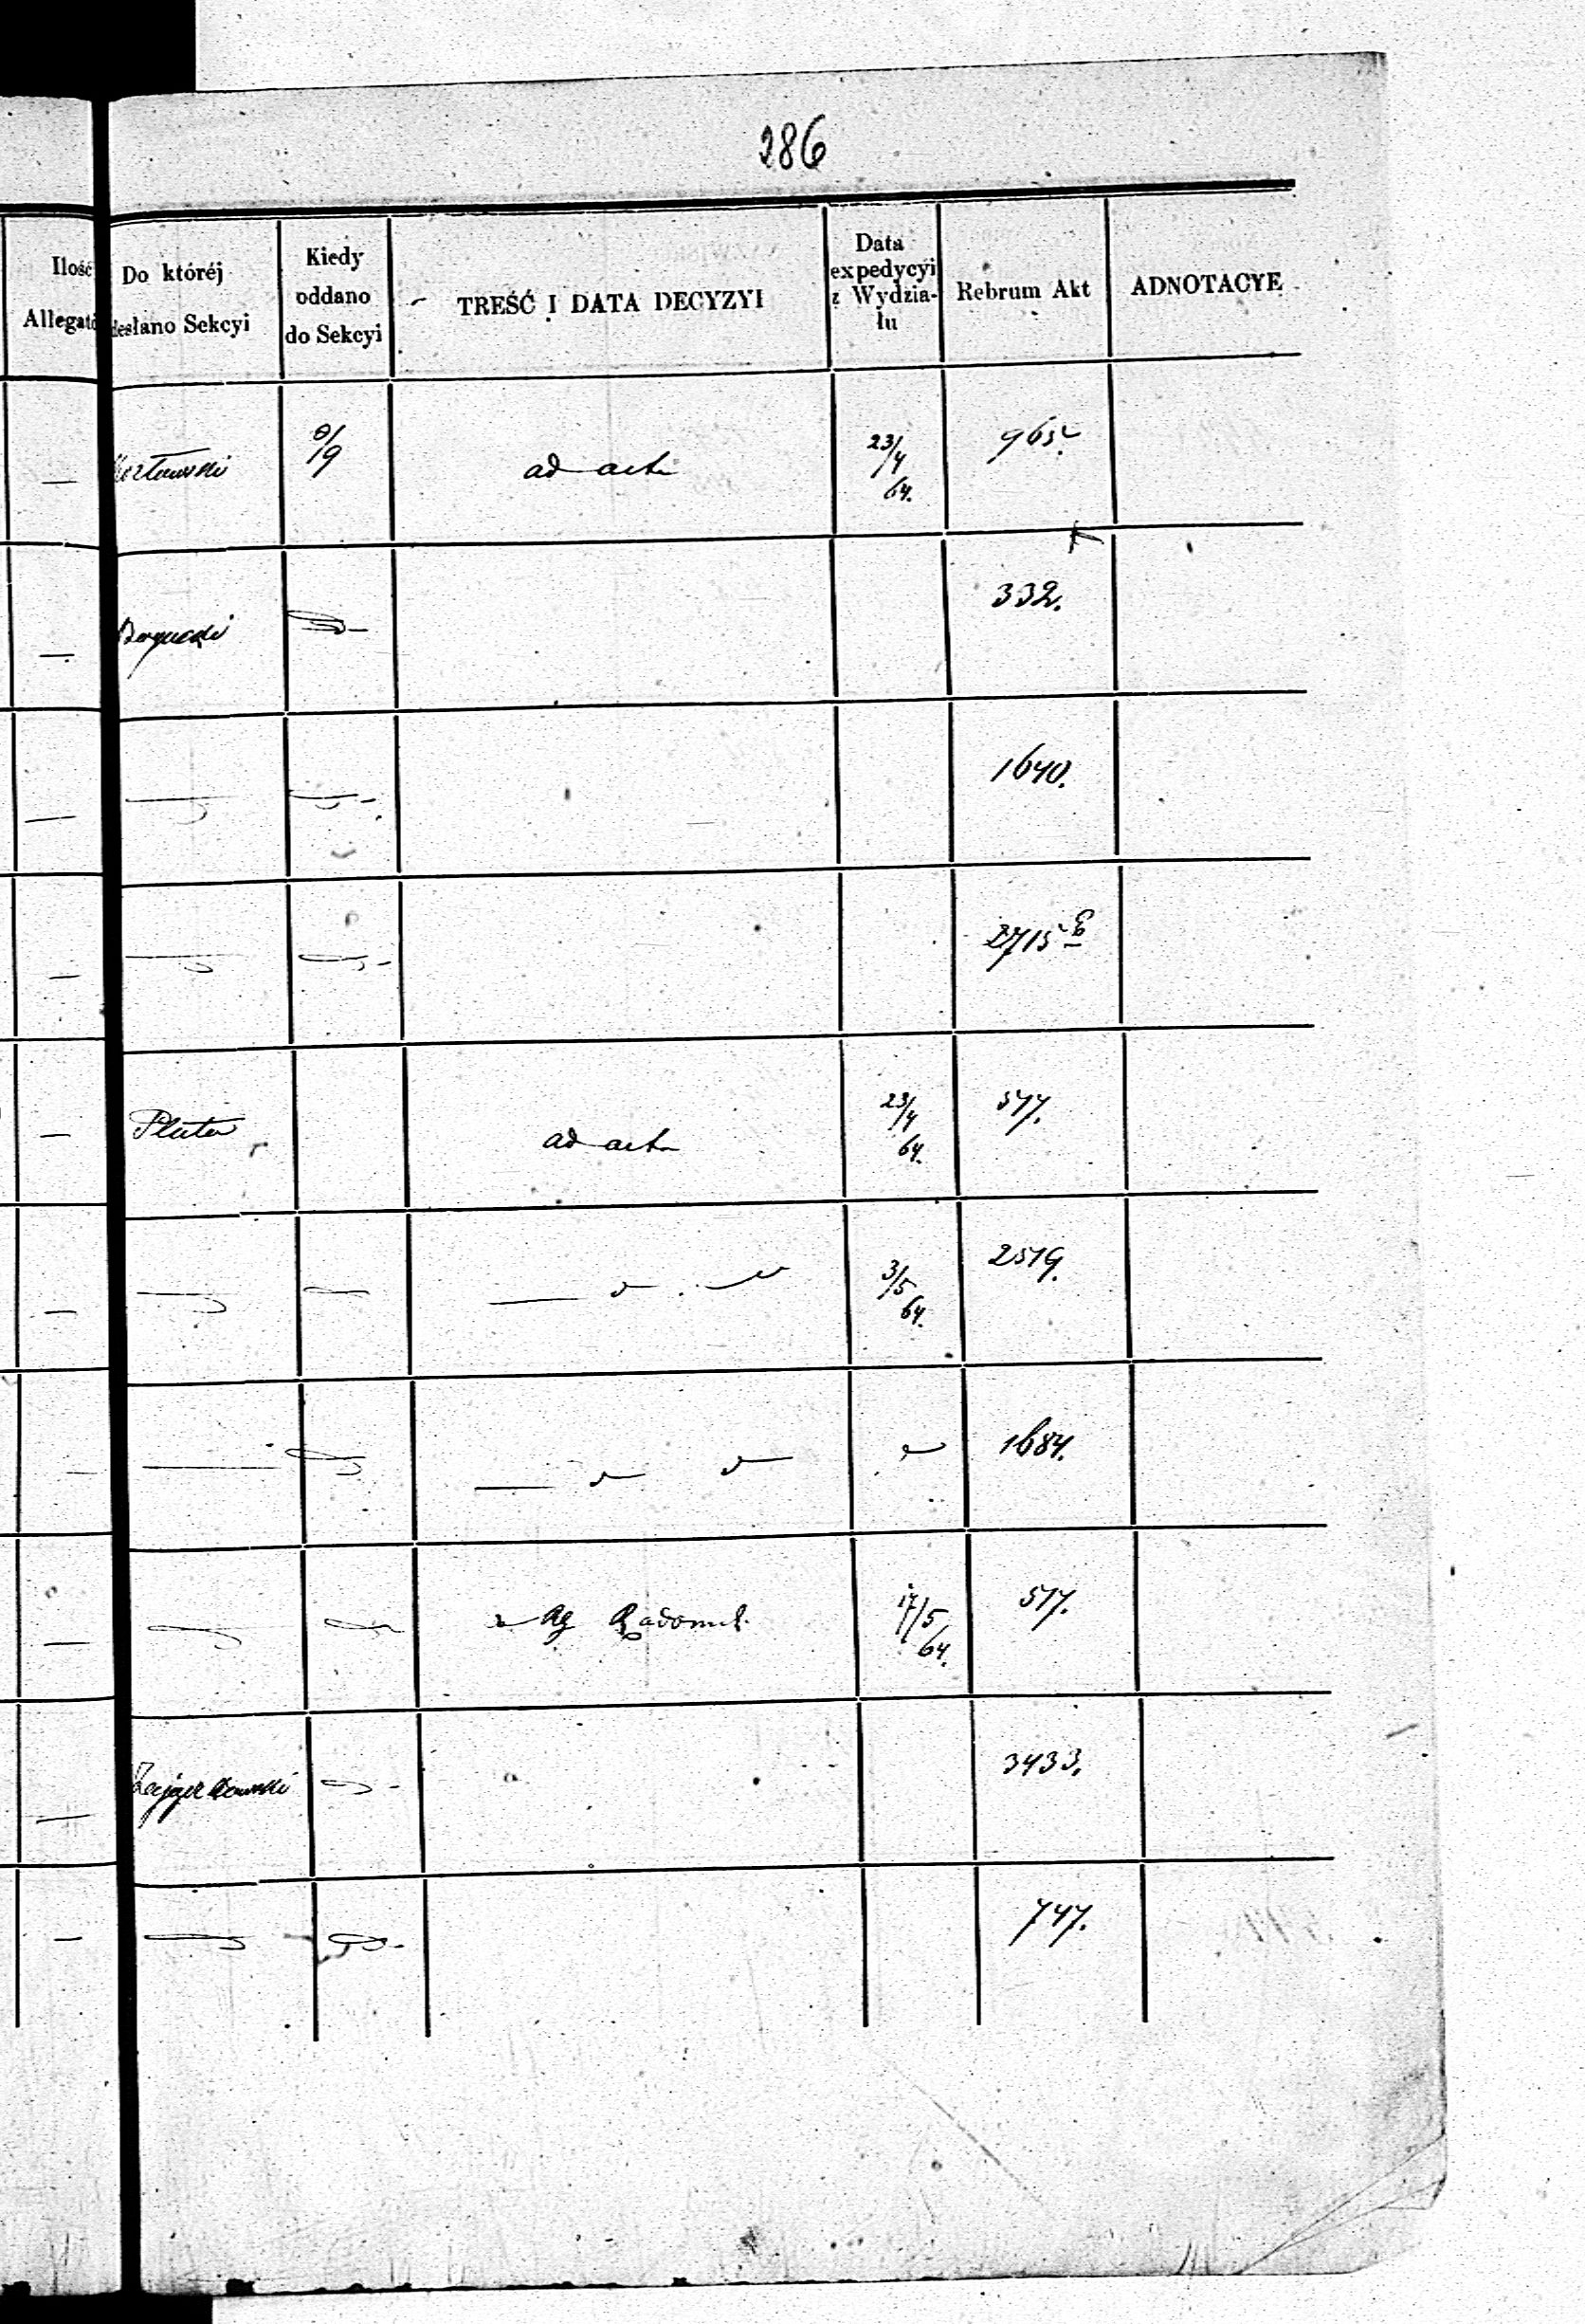 286
Ilość Allegató
Do któréj desłano Sekcyi
Kiedy oddano do Sekcyi
TREŚĆ I DATA DECYZYI
Data expedycyi z Wydziału
Rebrum Akt
ADNOTACYE
— 9/9 ad acta 23/4 64. 965
— 332.
— 1640.
— 2715
— Pluta ad acta 23/4 64. 577.
— 3/5 64. 2519.
— 1684.
— 17/5 64. 517.
— 3433.
— 747.